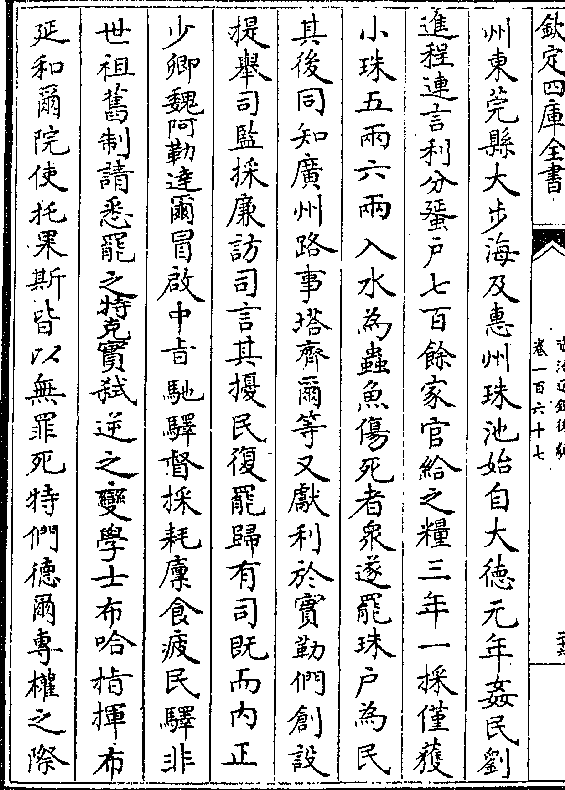 欽定四庫全書
卷一百六十七
州東莞縣大步海及惠州珠池始自大德元年姦民劉
進程連言利分蜑戸七百餘家官給之糧三年一採僅獲
小珠五兩六兩入水為蟲魚傷死者衆遂罷珠戸為民
其後同知廣州路事塔齊爾等又獻利於實勒們創設
提舉司監採廉訪司言其擾民復罷歸有司既而内正
少卿魏阿勒達爾冒啟中㫖馳驛督採耗廩食疲民驛非
世祖舊制請悉罷之特克實弑逆之變學士布哈指揮布
延和爾院使托果斯皆以無罪死特們德爾專權之際